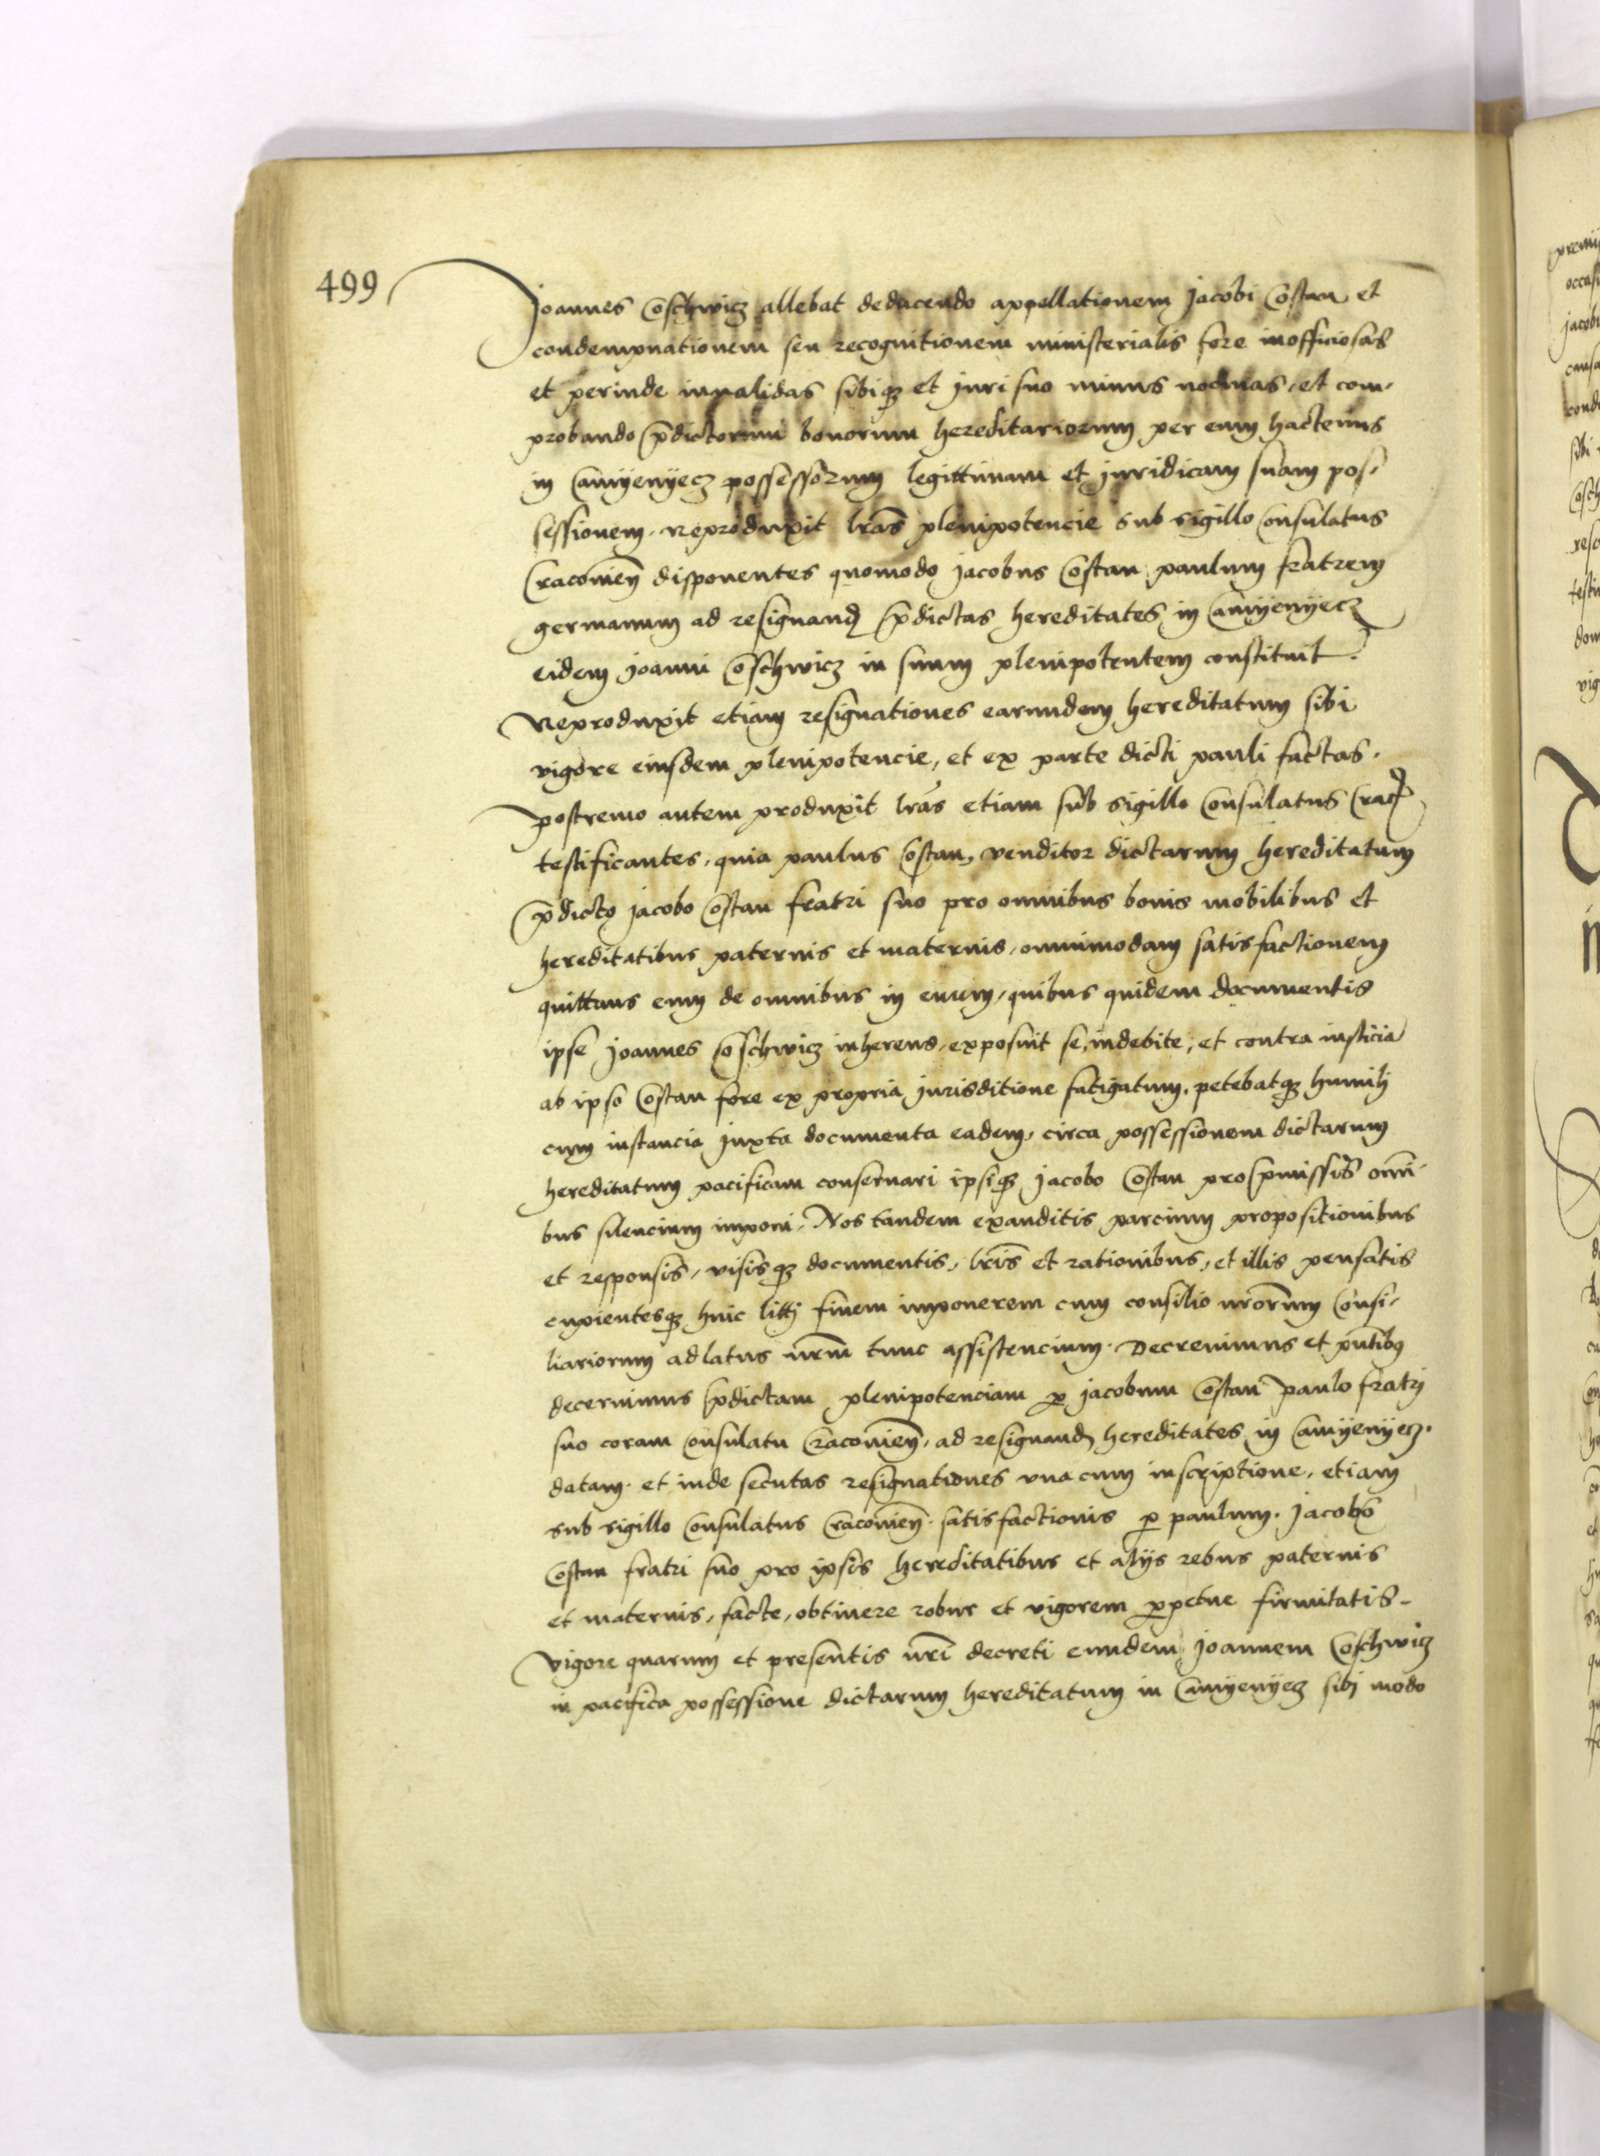 499
Joannes Coschwicz allebat deducendo appellationem Jacobi Costan et
condempnationem seu recognitionem ministerialis fore inofficiosas
et perinde inualidas sibiqꝫ et juri suo minus nociuas, et com-
probando p̄dictorum bonorum hereditariorum per eum hactenus
in Camyenyecz possessorum legittimam et juridicam suam pos-
sessionem. Reproduxit lr̄as plenipotencie sub sigillo Consulatus
Cracovien̄ disponentes quomodo Jacobus Costan paulum fratrem
germanum ad resignand̄ p̄dictas hereditates in Camyenyecz
eidem Joanni Coschwicz in suum plenipotentem constituit.
Reproduxit etiam resignationes earundem hereditatum sibi
vigore eiusdem plenipotencie, et ex parte dicti pauli factas.
postremo autem produxit lr̄as etiam sub sigillo Consulatus Crac̄
testificantes, quia paulus Costan, venditor dictarum hereditatum
p̄dicto Jacobo Costan fratri suo pro omnibus bonis mobilibus et
hereditatibus paternis et maternis, omnimodam satisfactionem
quittans eum de omnibus in euum, quibus quidem documentis
ipse Joannes Coschwicz inherens, exposuit se, indebite, et contra iusticia
ab ipso Costan fore ex propria jurisditione fatigatum. petebatqꝫ humili
cum instancia juxta documenta eadem, circa possessionem dictarum
hereditatum pacificam conseruari ipsiqꝫ Jacobo Costan pro p̄missis om̄i-
bus silencium imponi. Nos tandem exauditis parcium propositionibus
et responsis, visisqꝫ documentis, lr̄is et rationibus, et illis pensatis
cupientesqꝫ huic litti finem imponerem cum consilio nr̄orum Consi-
liariorum ad latus nr̄m tunc assistencium. Decreuimus et pn̄tibꝫ
decernimus p̄dictam plenipotenciam ꝑ Jacobum Costan paulo fratri
suo coram Consulatu Cracovien̄, ad resignand̄ hereditates in Camyenyecz.
datam. et inde secutas resignationes vna cum inscriptione, etiam
sub sigillo Consulatus Cracovien̄. satisfactionis ꝑ paulum. Jacobo
Costan fratri suo pro ipsis hereditatibus et alijs rebus paternis
et maternis, facte, obtinere robur et vigorem ꝑpetue firmitatis.
vigore quarum et presentis nr̄i decreti eundem Joannem Coschwicz
in pacifica possessione dictarum hereditatum in Camyenyecz sibi modo